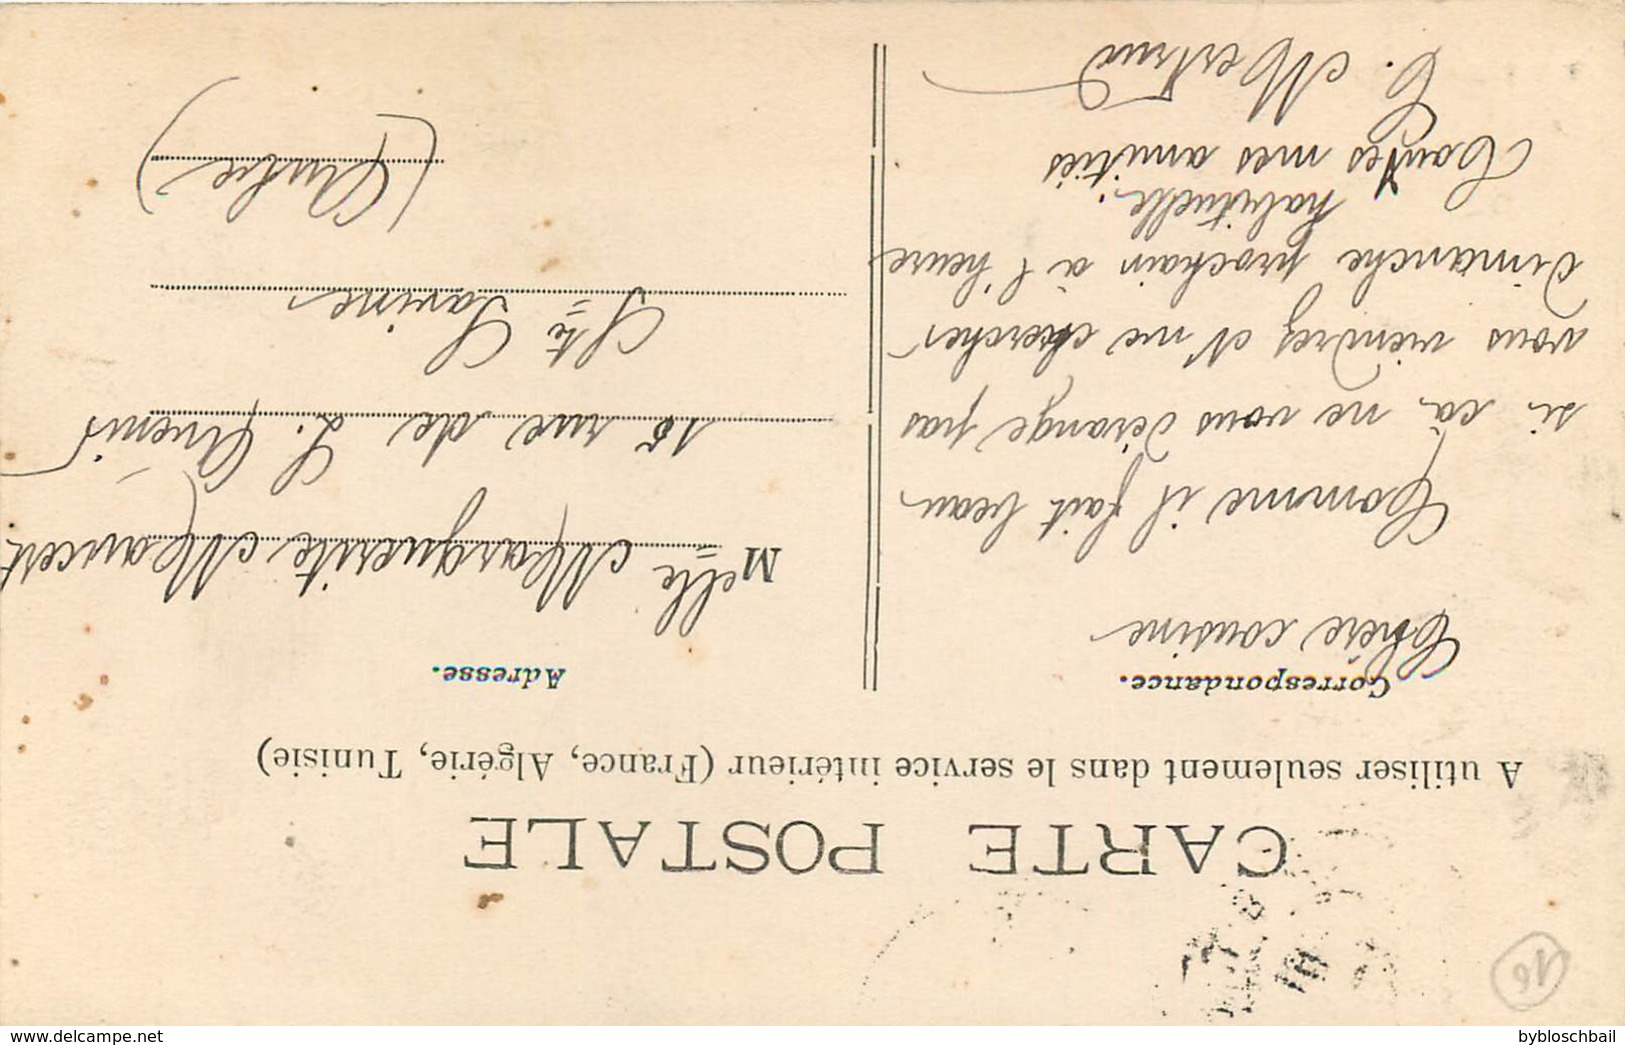 CARTE POSTALE
A utiliser seulement dans le service intérieur (France, Algérie, Tunisie)
Correspondance.
Chère cousine
Comme il fait beau
si ça ne vous dérange pas
vous viendrez me chercher
dimanche prochain à l'heure
habituelle.
Toutes mes amitiés
C. Mertrud
Adresse.
Melle Marguerite Maucert
15 rue de L.
Ste Savine
(Aube)
16
bybloschbail